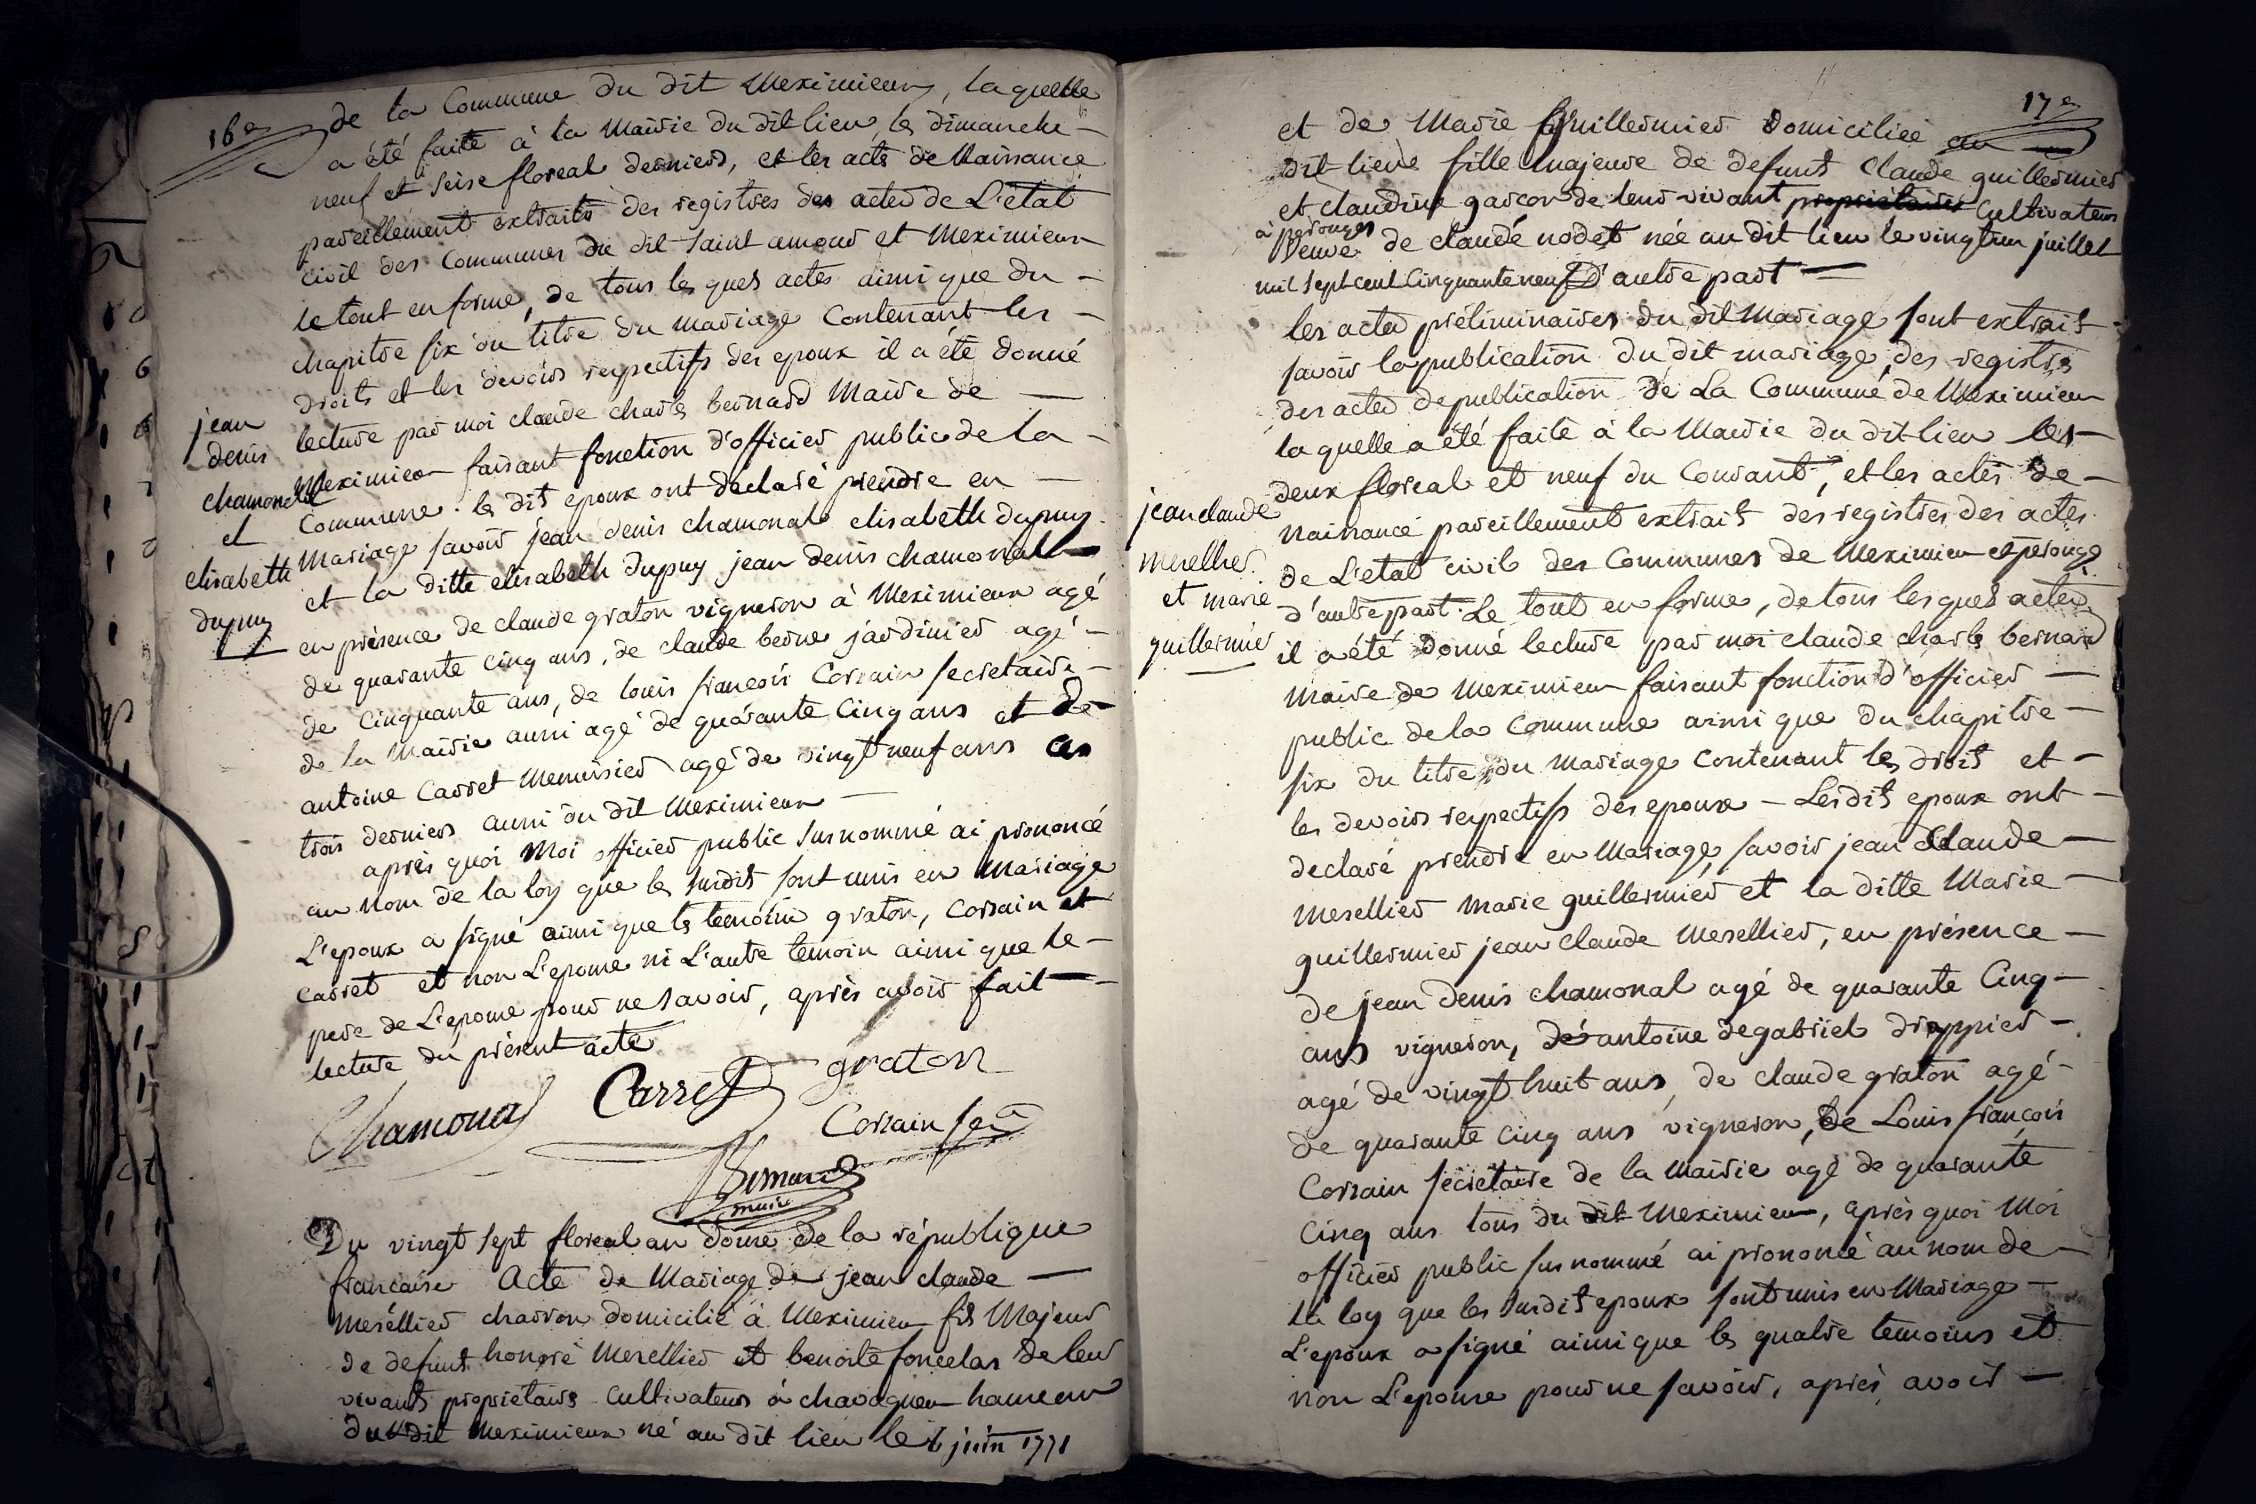 16e
de la Commune du dit Meximieux, laquelle
a été faite à la Mairie du dit lieu les dimanche
neuf et seise floreal derniers, et les acts de Naissance
pareillement extraits des registres des actes de L'état
civil des Communes du dit saint amour et Meximieux
le tout en forme, de tous les quels actes ainsi que du
chapitre six du titre du mariage Contenant les
droits et les devoirs respectifs des epoux il a été donné
lecture par moi claude charles bernard Maire de
Meximieux faisant fonction d'officier public de la
Commune. les dit epoux ont déclaré prendre en
Mariage savoir jean denis chamonal elisabeth dupuy
et la ditte elisabeth dupuy jean denis chamonal
en présence de claude graton vigneron à Meximieux agé
de quarante cinq ans, de claude berne jardinier agé
de cinquante ans, de louis françois Corrain secretaire
de la Mairie aussi agé de quarante cinq ans et de
antoine Carret Menuisier agé de vingt neuf ans les
trois derniers aussi du dit Meximieux
après quoi Moi officier public susnommé ai prononcé
au Nom de la loy que les susdits sont unis en Mariage
L'epoux a signé ainsi que les temoins graton, Corrain et
Carret et non L'epouse ni L'autre temoin ainsi que le
pere de L'epouse pour ne savoir, après avoir fait
lecture du présent acte
jean
denis
chamonal
et
elisabeth
dupuy
Chamonal Carret graton
Corrain
Bernard
maire
Du vingt sept floreal an douse de la république
francaise Acte de Mariage de jean claude
Meréllier charron domicilié à Meximieux fils Majeur
de defunt honoré Merellier et benoite foncelas de leur
vivants propriétaires Cultivateurs à chavagneu hameau
du dit Meximieux né au dit lieu le 6 juin 1771
17e
et de Marie Guillermier Domiciliée au
dit lieu fille Majeure de defunts Claude guillermier
et claudine garcon de leur vivant propriétaires Cultivateurs
à perouges
Veuve de claude nodet née au dit lieu le vingt un juillet
mil sept cent Cinquante neuf D'autre part
les actes préliminaires du dit Mariage sont extrait
savoir la publication du dit mariage, des registres
des actes de publication de La Commune de Meximieux
la quelle a été faite à la Mairie du dit lieu les
deux floreal et neuf du Courant, et les actes de
naissance pareillement extrait des registres des actes
de L'etat civil des Communes de Meximieux et perouge
d'autre part. Le tout en forme, de tous les quels actes
il a été donné lecture par moi claude charles bernard
Maire de Meximieux faisant fonction d'officier
public de la Commune ainsi que du chapitre
six du titre du Mariage Contenant les droits et
les devoirs respectifs des epoux – Les dits epoux ont
declaré prendre en Mariage savoir jean Claude
Merellier Marie guillermier et la ditte Marie
guillermier jean claude Merellier, en présence
de jean denis chamonal agé de quarante Cinq
ans vigneron, de antoine degabriel drappier
agé de vingt huit ans, de claude graton agé
de quarante cinq ans vigneron, de Louis françois
Corrain sécrétaire de la Mairie agé de quarante
Cinq ans tous du dit Meximieux, après quoi Moi
officier public sus nommé ai prononcé au nom de
la loy que les susdits epoux sont unis en Mariage
L'epoux a signé ainsi que les quatre temoins et
non L'epouse pour ne savoir, après avoir
jean claude
merellier
et marie
guillermier